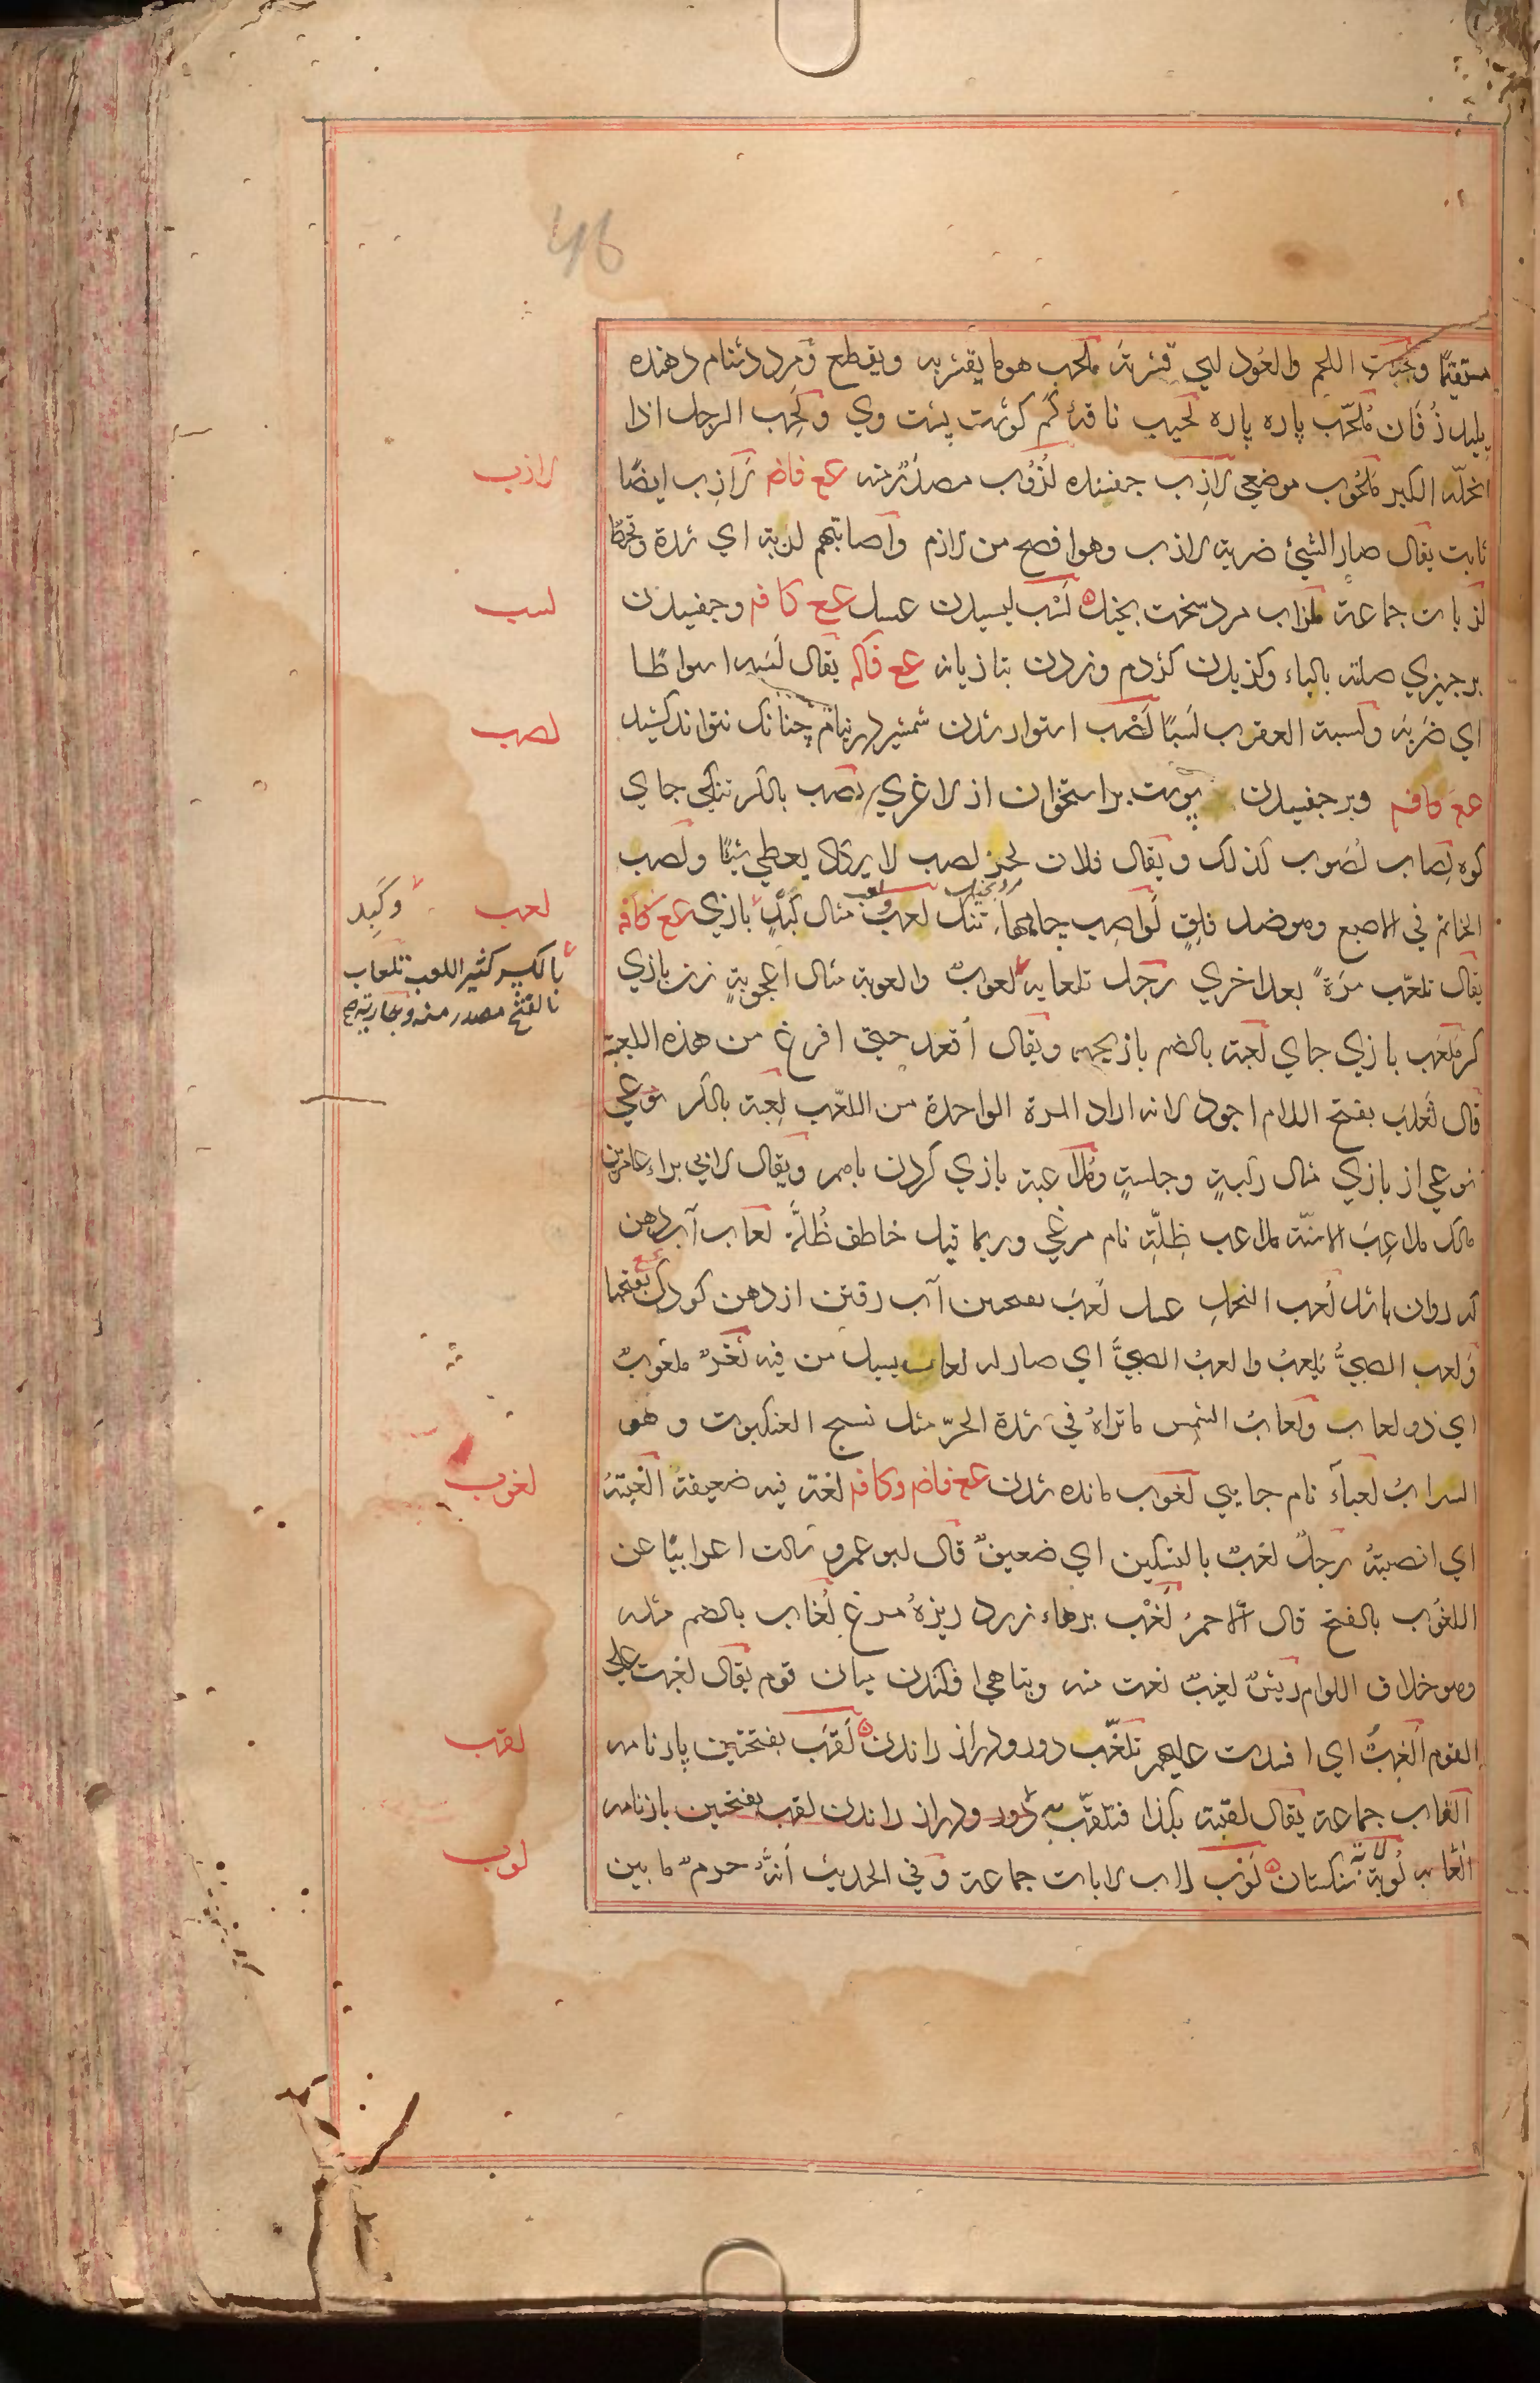 46
مستقيما ولحبت اللحم والعود اي قشرته ملحب هو ما يقشر به ويقطع ومرد دشنام دهنده
پليد زفان ملحّب پاره پاره لحيب ناقهٔ كم كوشت پشت وي ولحب الرجل اذا
انحله الكبر ملحوب موضعي لازب چفسنده لزوب مصدر منه عع فاضم لازب ايضًا
ثابت يقال صار الشئ ضربة لازب وهو افصح من لازم واصابتهم لزبة اي شدة وقحط
لزبات جماعة ملزاب مرد سخت بخيل لسب ليسيدن عسل عع كافه وچفسيدن
بر چيزي صلته بالباء وكزيدن كژدم وزدن بتازيانه عع فاكه يقال لسبه اسواطا
اي ضربه ولسبة العقرب لسبًا لصب استوار شدن شمشير در نيام چنانك نتواند كشيد
عع كافه وبر چفسيدن پوست بر استخوان از لاغري لصب بالكسر تنكي جاي
كوه لصاب لصوب كذلك ويقال فلان لحز لصب لا يكاد يعطي شيئًا ولصب
الخاتم في الاصبع وهو ضد قلق لواصب چاهها تنك لعب مثال كبد بازي عع كافه
يقال تلعّب مرّة بعد اخري رجل تلعابة لعوب والعوبة مثال اعجوبة زن بازي
كر ملعب بازي جاي لعبة بالضم بازيچه ويقال اقعد حتي افرغ من هذه اللعبة
قال ثعلب بفتح اللام اجود لانه اراد المرة الواحدة من اللعب لعبة بالكسر نوعي
نوعي از بازي مثال ركبة وجلسة وملاعبة بازي كردن باهم ويقال لابي براء عامر بن
مالك ملاعب الاسنّة ملاعب ظلّه نام مرغي وربما قيل خاطف ظلّه لعاب آب دهن
كه روان باشد لعاب النحل عسل لعب بفتحتين آب رفتن از دهن كودك عع بفتحها
ولعب الصبيُّ يلعب والعب الصبيُّ اي صار له لعاب يسيل من فيه ثغر ملعوب
اي ذو لعاب ولعاب الشمس ما تراه في شدة الحرّ مثل نسج العنكبوت وهو
السراب لعباء نام جايي لغوب مانده شدن عع فاضم وكافه لغة فيه ضعيفة الغبته
اي انصبته رجل لغب بالتسكين اي ضعيف قال ابو عمرو سالت اعرابيًا عن
اللغوب بالفتح قال الاحمق لغب پرهاء زرد ريزهٔ مرغ لغاب بالضم مثله
وهو خلاف اللوام ريش لغيب نعت منه وتباهي افكندن ميان قوم يقال لغبت علي
القوم الغب اي افسدت عليهم تلغّب دور ودراز راندن لقب بفتحتين پارنامه
القاب جماعة يقال لقبته بكذا فتلقّب دور ودراز راندن لقب بفتحتين بارنامه
القاب لوبة لابة سنكستان لوب لاب لابات جماعة وفي الحديث انه حرم ما بين
لازب
لسب
لصب
لعب
وكَبِد
بالكسر كثير اللعب تلعاب
بالفتح مصدر منه وجارية
لغوب
لقب
لوب